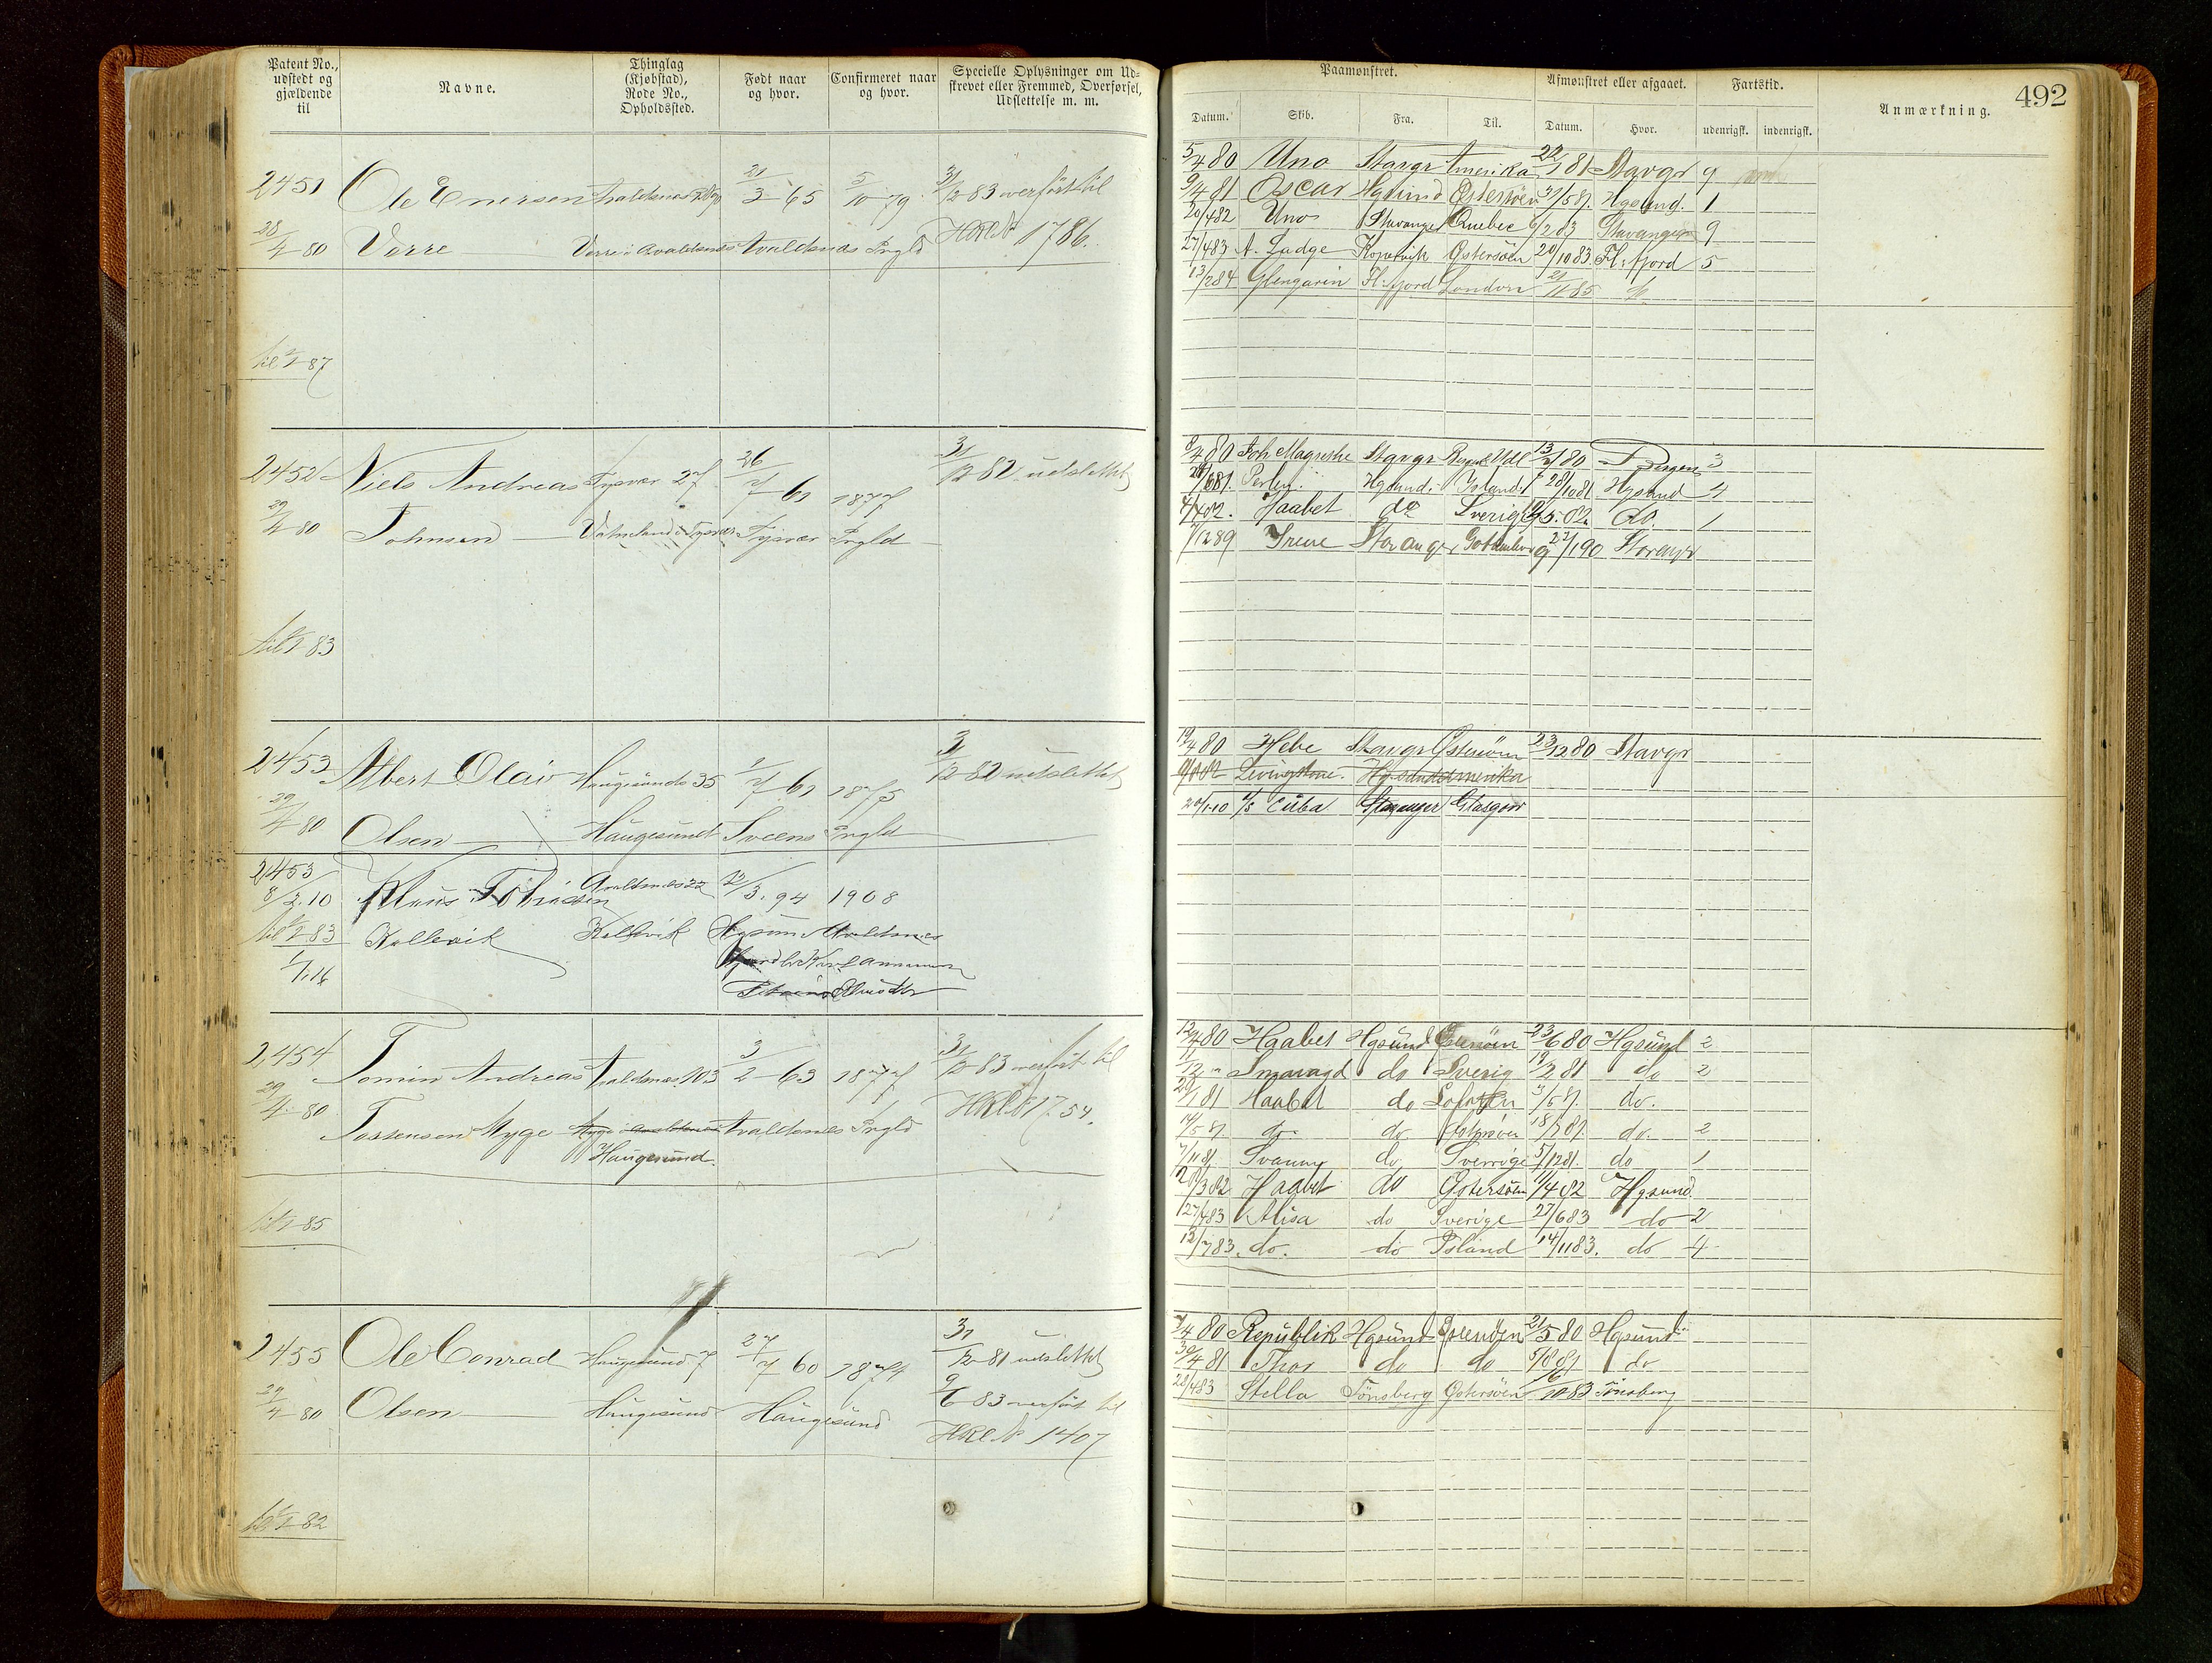 Patent No., udstedt og gjældende til
Navne.
Thinglag (Kjøbstad), Rode No., Opholdssted.
Født naar og hvor.
Confirmeret naar og hvor.
Specielle Oplysninger om Udskrevet eller Fremmed, Overførsel, Udslettelse m. m.
Paamønstret.
Afmønstret eller afgaaet.
Fartstid.
Anmærkning.
492
Datum.
Skib.
Fra.
Til.
Datum.
Hvor.
udenrigsk.
indenrigsk.
2451 Ole Enersen 21/3 65 5/10 79 31/12 83 overført til
28/4 80 Vorre Vorre i Avaldsnæs Avaldsnæs Prgld HRL No 1786.
til 1/1 87
5/4 80 Uno Stavgr Amerika 22/1 81 Stavgr 9
9/4 81 Oscar Hgsund Østersøen 31/5 81. Hgsund. 1
20/4 82 Uno Stavanger Quebec 6/2 83 Stavanger 9
27/4 83 A. Ladge Kopervik Østersøen 20/10 83 Fl:fjord 5
13/2 84 Glengarin Fl:fjord London 21/11 85
2452 Niels Andreas Tysvær 27 26/7 61 1877 31/12 82 udslettet
29/4 80 Johnsen Tysvær Prgld
til 1/1 83
8/4 80 Joh Magrethe Stavgr 13/7 80 Bergen 3
Perlen Hgsund Island 28/10 81 Hgsund 4
Haabet do Sverige do. 1
Irene Stavanger 27/1 90 Stavangr
2453 Albert Olai Haugesund 35 1/7 61 1875 31/12 82 udslettet
29/4 80 Olsen Haugesund Sveens Prgld
2453
8/2.10 Klaus Tobiassen Avaldsnes 22 12/3. 94 1908
til 1/1 83 Kallevik Kallevik Hgsund Avaldsnes
1/1.16
19/4 80 Hebe Stavgr Østersøen 23/12 80 Stavgr
Livingstone. Hgsund Amerika
20/1-10 s/s Cuba Stavanger Glasgow
2454 Tomin Andreas Avaldsnæs 103 3/2 63 1877 31/12 83 overført til
29/4 80 Tossensen Myge Avaldsnæs Prgld HRL No 1754.
Haugesund.
til 1/1 85
12/4 80 Haabet Hgsund Østersøen 23/6 80 Hgsund 2
Smaragd do Sverig 12/2 81 do 2
Haabet do Lofoten do.
14/5 81. do. do. Østersøen 18/7 81. do. 2
7/11 81 Svanny do Sverrige 5/12 81. do 1
Haabet do Østersøen 11/4 82 Hgsund
27/4 83 Alisa do Sverige 27/6 83 do 2
12/7 83. do. do Island 14/11 83. do 4
2455 Ole Conrad Haugesund 7 27/7 60 1874 31/12 81 udslettet
29/4 80 Olsen Haugesund Haugesund 9/6 83 overført til
HRL No 1407
til 1/1 82
7/4 80 Republik Hgsund Østersøen 21/5 80 Hgsund
30/4 81 Thor do do 5/8 81. do
28/4 83 Stella Tønsberg Østersøen 16/10 83 Tønsberg